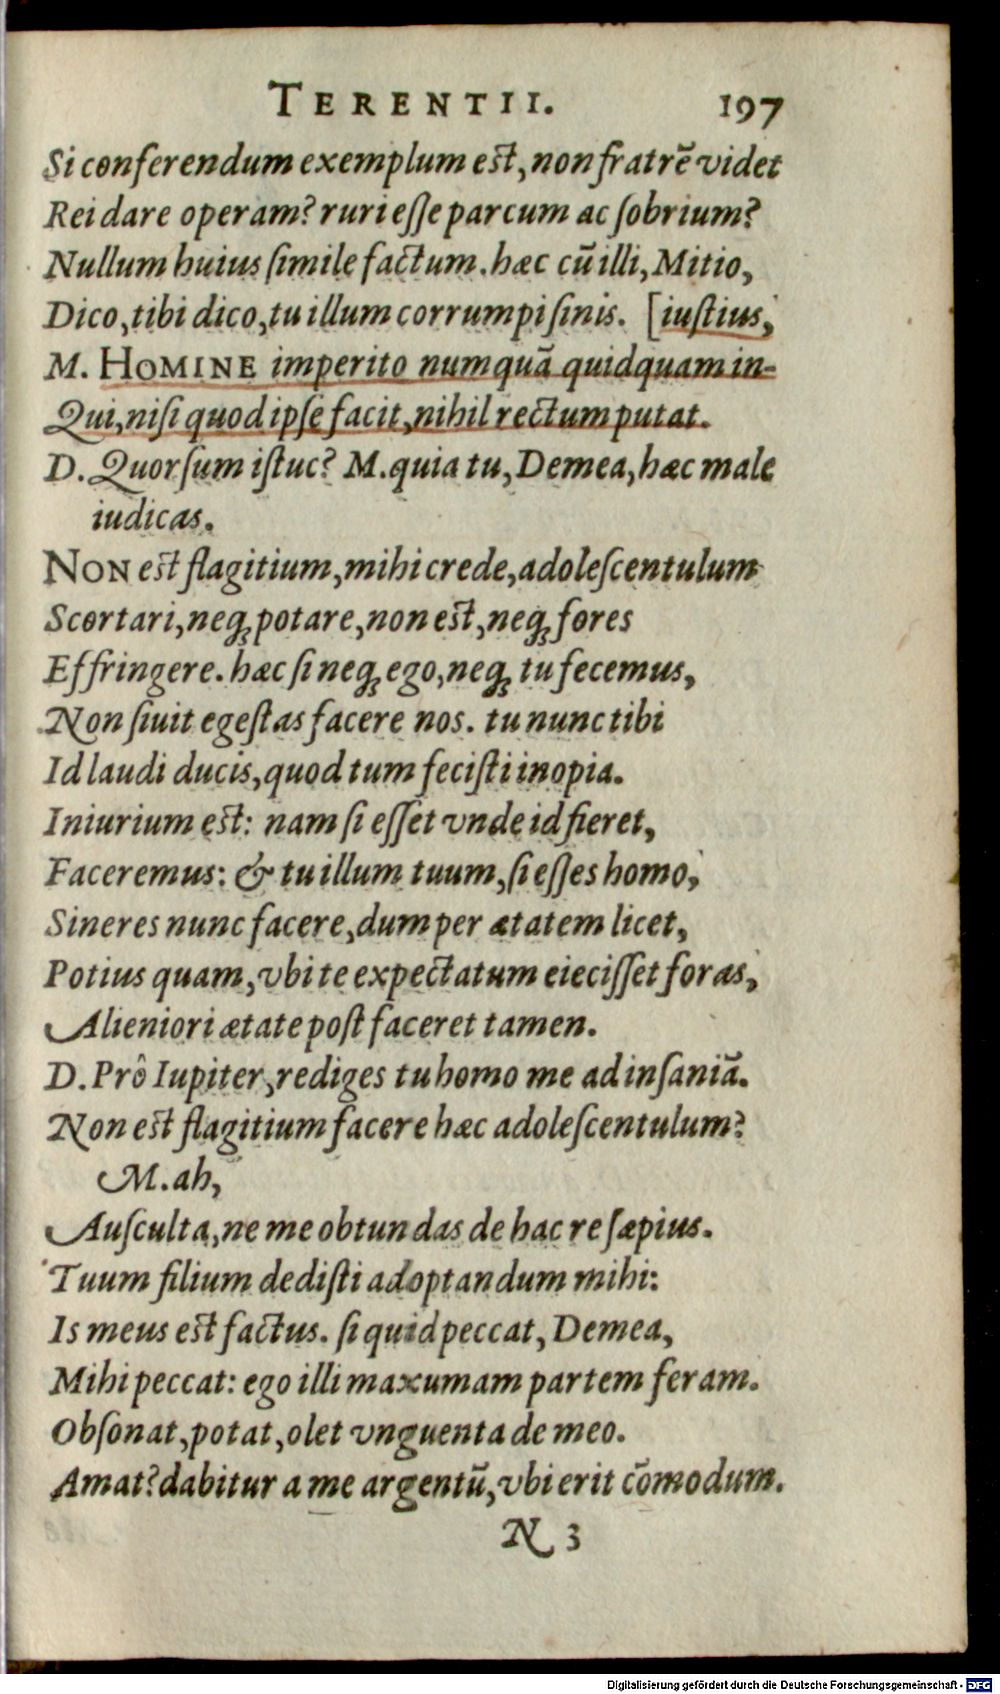 TERENTII. 197
Si conferendum exemplum est, non fratrē videt
Rei dare operam? ruri eſſe parcum ac ſobrium?
Nullum huius ſimile factum. hæc cū illi, Mitio,
Dico, tibi dico, tu illum corrumpi ſinis. [iuſtius,
M. HOMINE imperito numquā quidquam in-
Qui, niſi quod ipſe facit, nihil rectum putat.
D. Quorſum iſtuc? M. quia tu, Demea, hæc male
iudicas.
NON est flagitium, mihi crede, adoleſcentulum
Scortari, neq; potare, non est, neq; fores
Effringere. hæc ſi neq; ego, neq; tu fecemus,
Non ſiuit egeſtas facere nos. tu nunc tibi
Id laudi ducis, quod tum feciſti inopia.
Iniurium est: nam ſi eſſet vnde id fieret,
Faceremus: & tu illum tuum, ſi eſſes homo,
Sineres nunc facere, dum per ætatem licet,
Potius quam, vbi te expectatum eieciſſet foras,
Alieniori ætate poſt faceret tamen.
D. Prô Iupiter, rediges tu homo me ad inſaniā.
Non est flagitium facere hæc adoleſcentulum?
M. ah,
Auſculta, ne me obtundas de hac re ſæpius.
Tuum filium dediſti adoptandum mihi:
Is meus est factus. ſi quid peccat, Demea,
Mihi peccat: ego illi maxumam partem feram.
Obſonat, potat, olet vnguenta de meo.
Amat? dabitur a me argentū, vbi erit cōmodum.
N 3
Digitalisierung gefördert durch die Deutsche Forschungsgemeinschaft - DFG